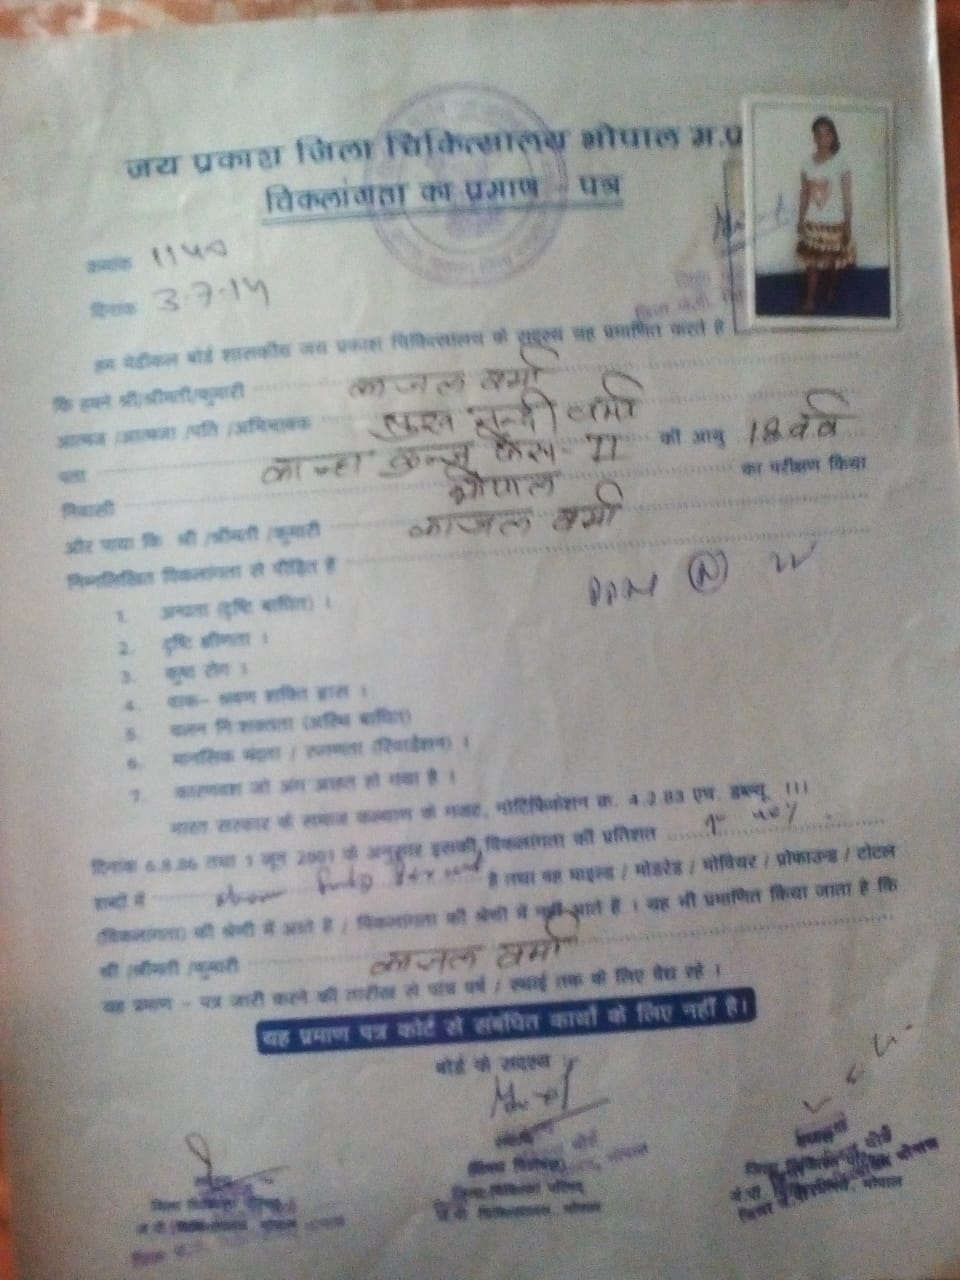 जय प्रकाश जिला चिकित्सालय भोपाल म.प्र
विकलांगता का प्रमाण - पत्र
क्रमांक 1140
दिनांक 3-7-14
हम मेडीकल बोर्ड शासकीय जय प्रकाश चिकित्सालय के सदस्य यह प्रमाणित करते है
कि हमने श्री/श्रीमती/कुमारी काजल वर्मा
आत्मज /आत्मजा /पति /अभिभावक वर्मा
पता कान्हा फेस- II की आयु 18 वर्ष
निवासी भोपाल का परीक्षण किया
और पाया कि श्री /श्रीमती /कुमारी काजल वर्मा
निम्नलिखित विकलांगता से पीड़ित है
1. अन्धता (दृष्टि बाधित) ।
2. दृष्टि क्षीणता ।
3. कुष्ठ रोग ।
4. वाक- श्रवण शक्ति ह्रास ।
5. चलन नि:शक्तता (अस्थि बाधित)
6. मानसिक मंदता / रुग्णता (रिटार्डेशन) ।
7. कारणवश जो अंग आहत हो गया है ।
भारत सरकार के समाज कल्याण के गजट, नोटिफिकेशन क्र. 4.2.83 एच. डब्ल्यू. III
दिनांक 6.8.86 तथा 1 जून 2001 के अनुसार इसकी विकलांगता की प्रतिशत 40%
शब्दों में है तथा यह माइल्ड / मोडरेड / सीवियर / प्रोफाउन्ड / टोटल
(विकलांगता) की श्रेणी में आते है / विकलांगता की श्रेणी में नहीं आते है । यह भी प्रमाणित किया जाता है कि
श्री /श्रीमती /कुमारी काजल वर्मा
यह प्रमाण - पत्र जारी करने की तारीख से पांच वर्ष / स्थाई तक के लिए वैध रहे ।
यह प्रमाण पत्र कोर्ट से संबंधित कार्यो के लिए नहीं है।
बोर्ड के सदस्य
जिला चिकित्सा
जे.पी. चिकित्सालय, भोपाल
जिला चिकित्सा परिषद्
जे.पी. चिकित्सालय, भोपाल
चिकित्सालय, भोपाल